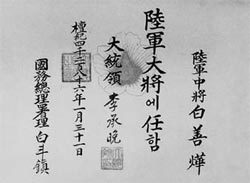 陸軍中將白善燁
陸軍大將에任함
大統領 李承晩
檀紀四千二百八十六年一月三十一日
國務總理署理 白斗鎭